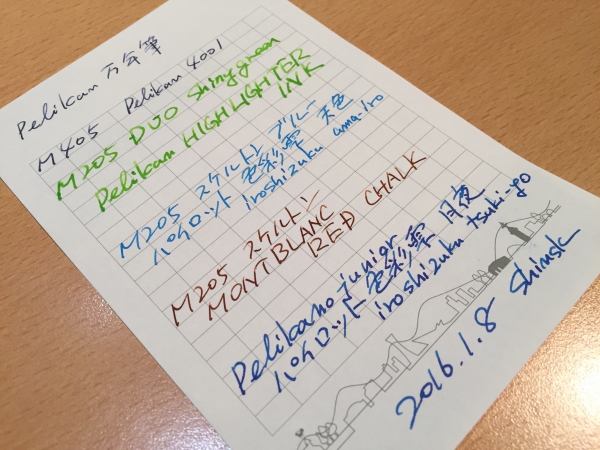 Pelikan 万年筆
M405 Pelikan 4001
M205 DUO Shiny green
Pelikan HIGHLIGHTER
INK
M205 スケルトン ブルー
パイロット 色彩雫 天色
iroshizuku ama-iro
M205 スケルトン
MONTBLANC
RED CHALK
Pelikano junior
パイロット 色彩雫 月夜
iroshizuku tsuki-yo
2016.1.8 shimsk